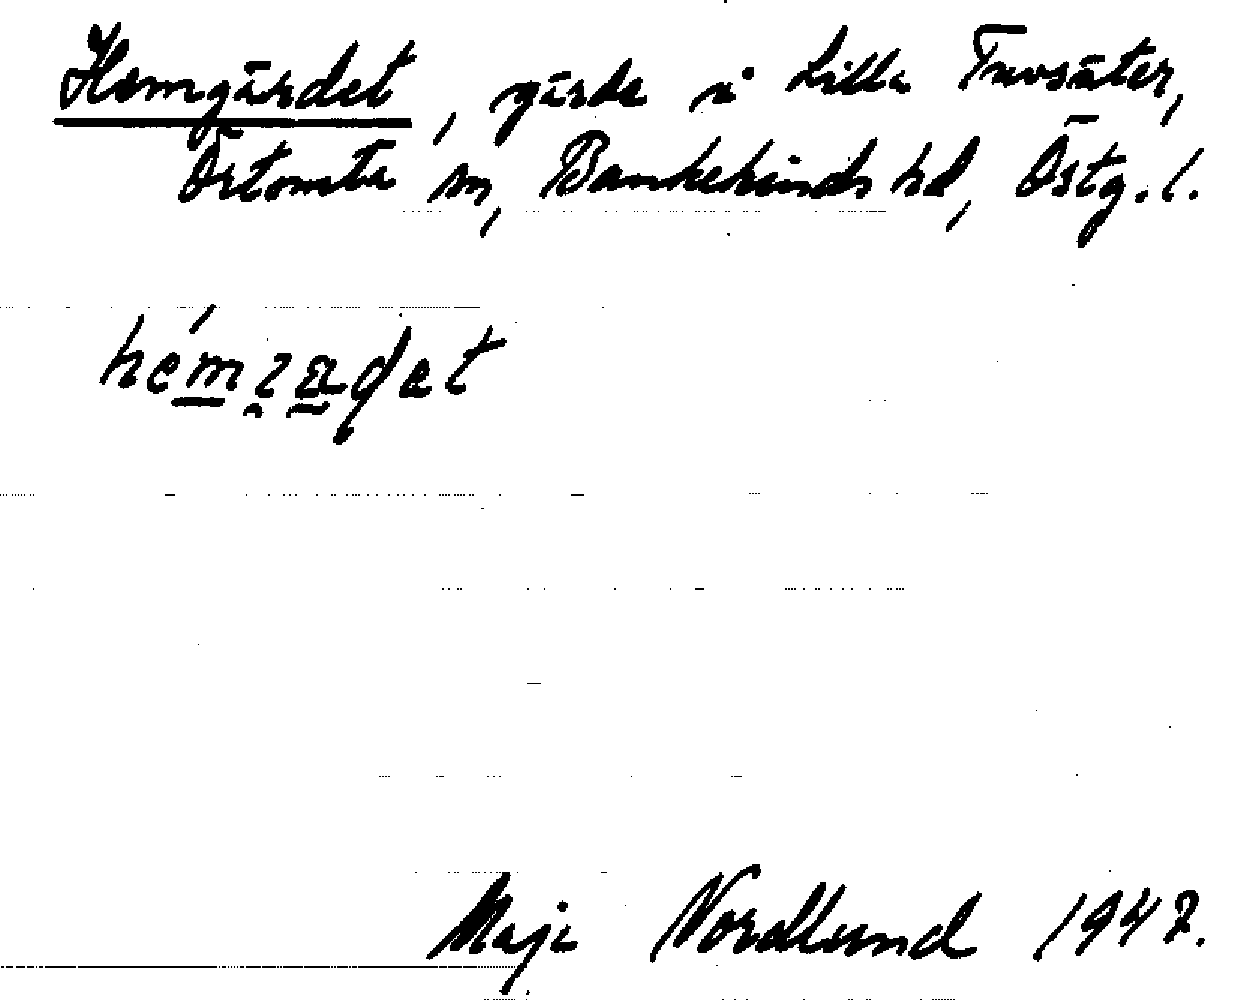 Hemgärdet, gärde i Lilla Tuvsäter,
Örtomta sn, Bankekinds hd, Östg. l.
Maja Nordlund 1947.